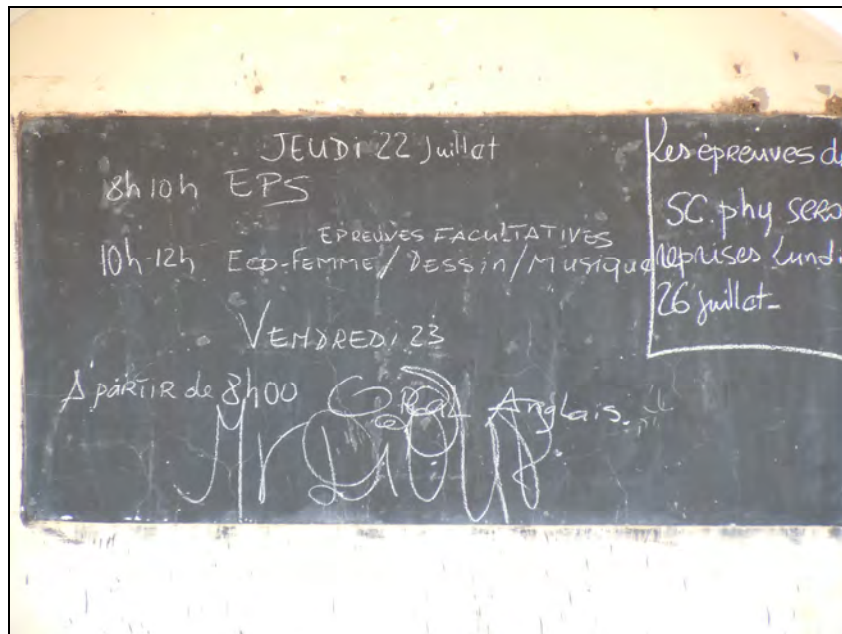 JEUDi 22 Juillet
8h 10h EPS
EPREUVES FACULTATIVES
10h-12h ECO-FEMME / DESSin / MUSiQUE
VENDREDi 23
A pARTiR de 8h00 ORAL Anglais.
Mr DiOUF
Les épreuves d
SC. phy sero
reprises Lundi
26 juillet-